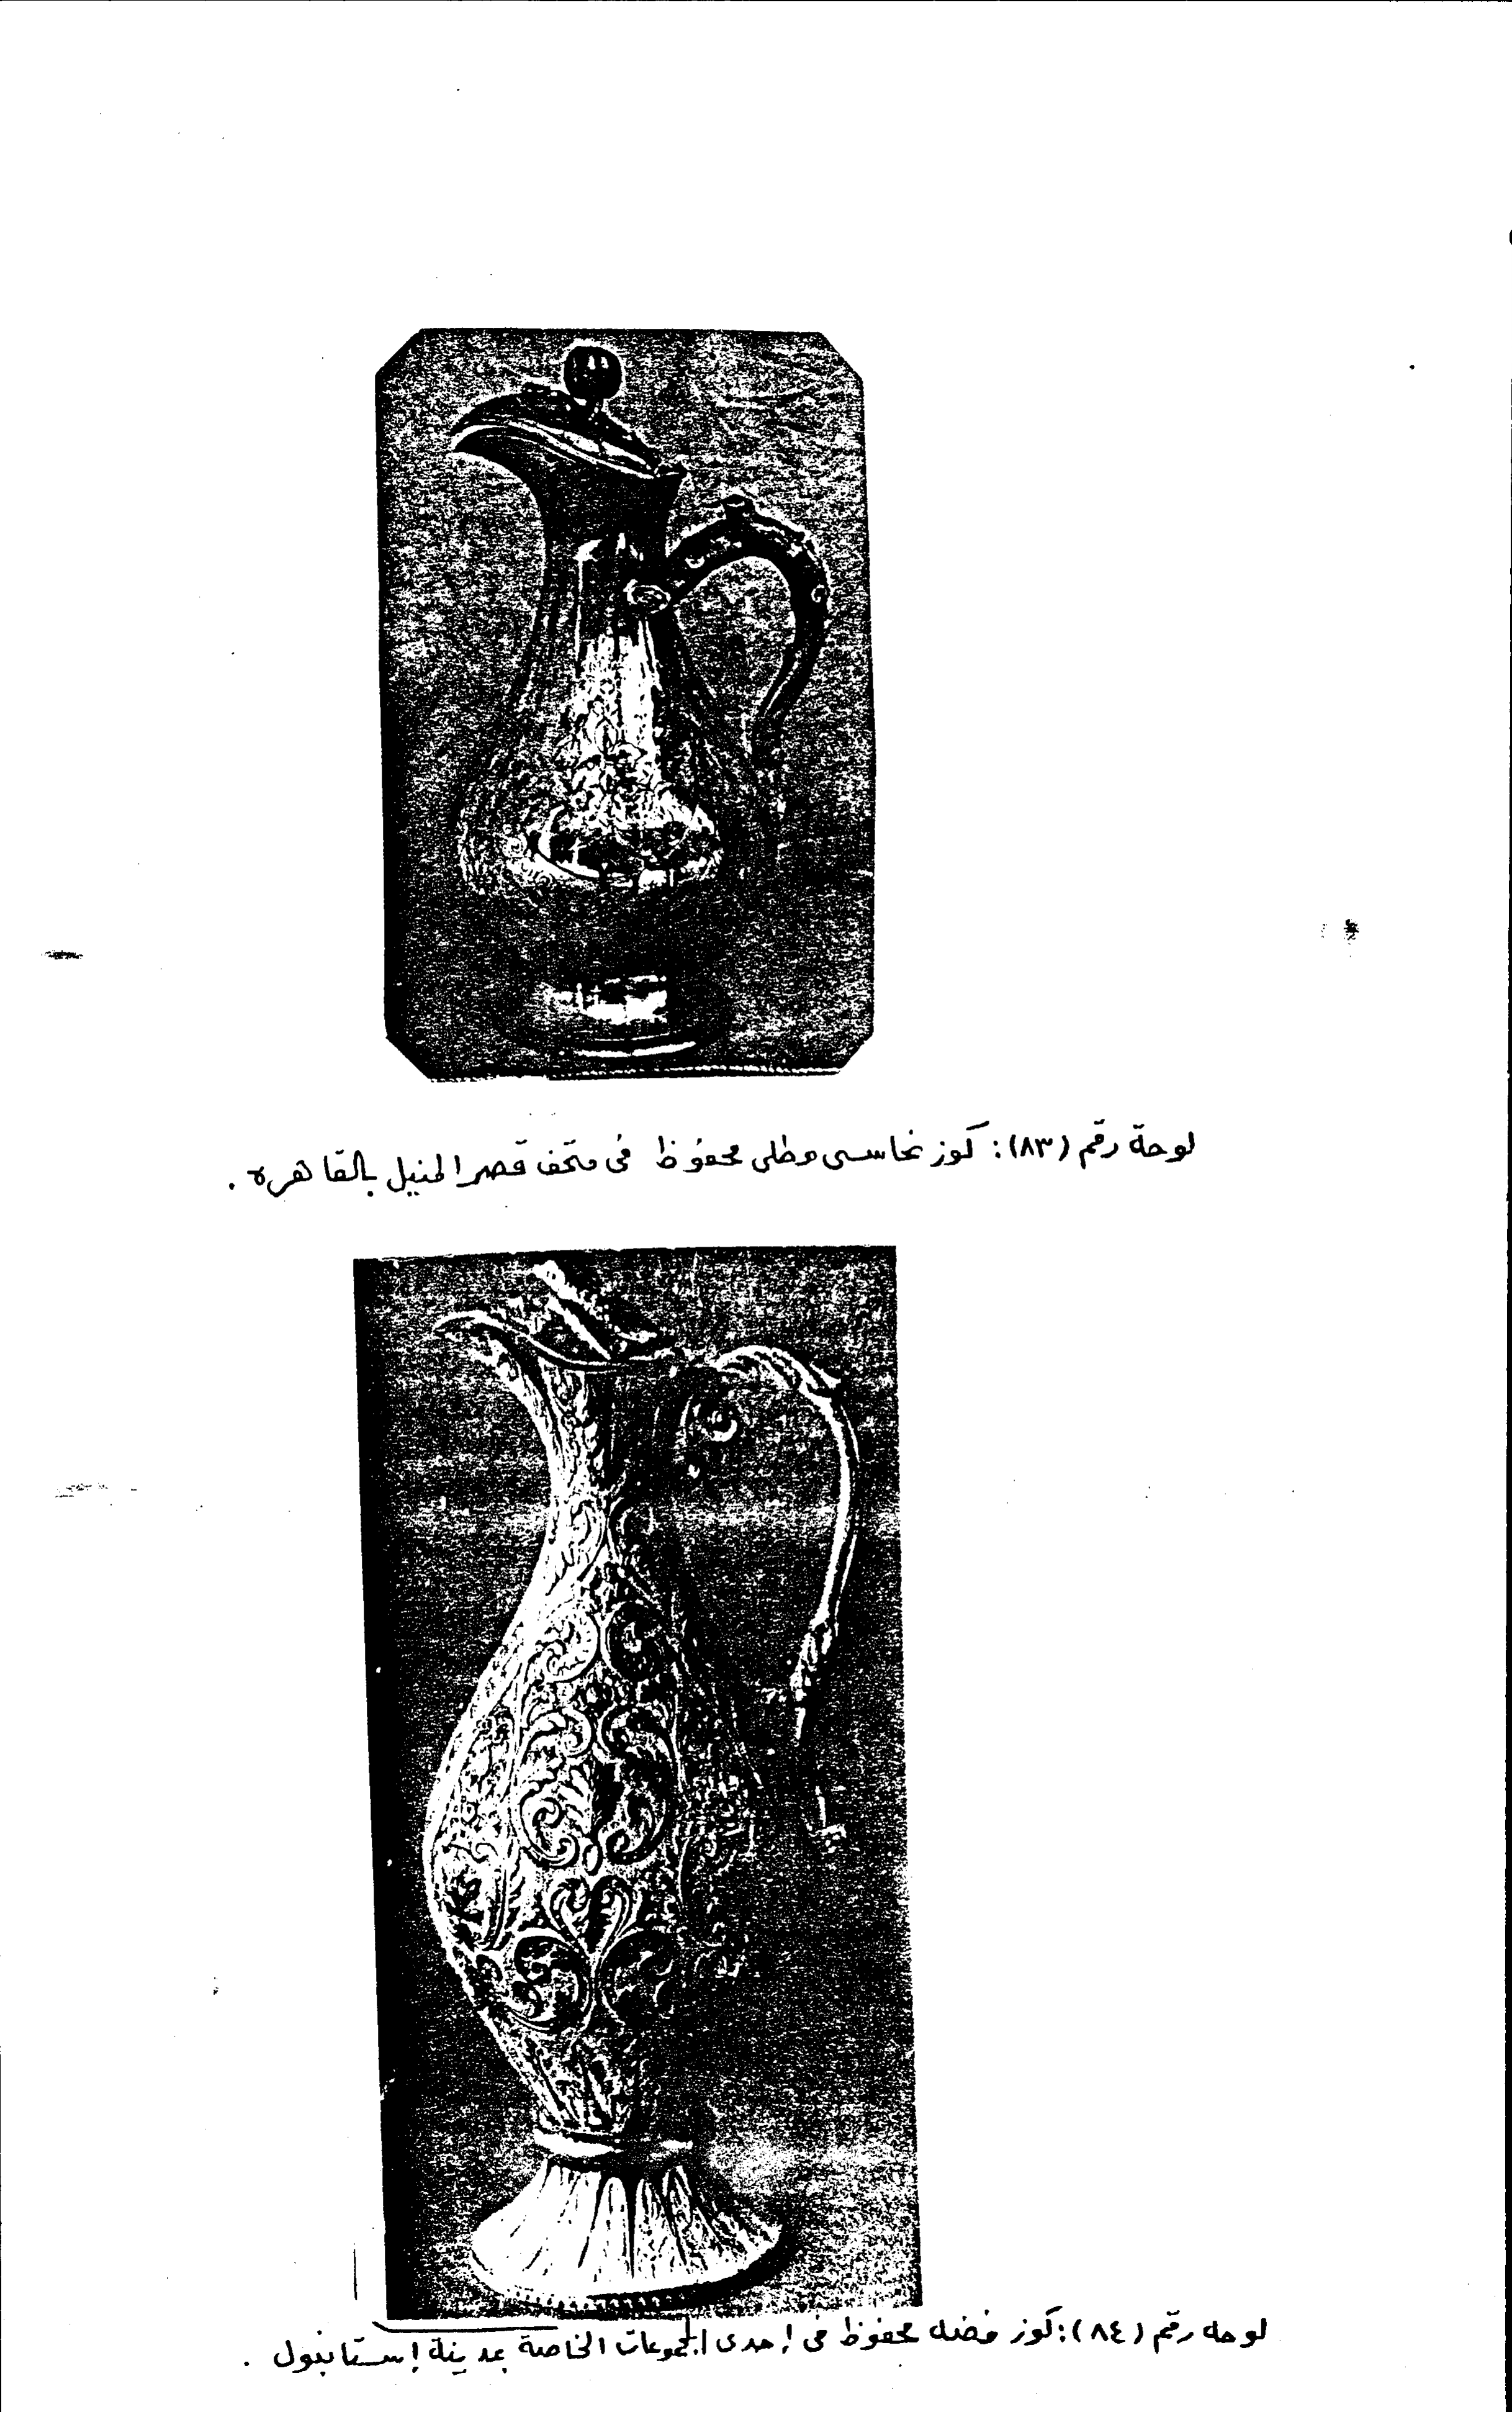 لوحة رقم (٨٣): كوز نحاسى مطلى محفوظ فى متحف قصر المنيل بالقاهره .
لوحه رقم (٨٤): كوز فضه محفوظ فى إحدى المجموعات الخاصة بمدينة إستانبول .